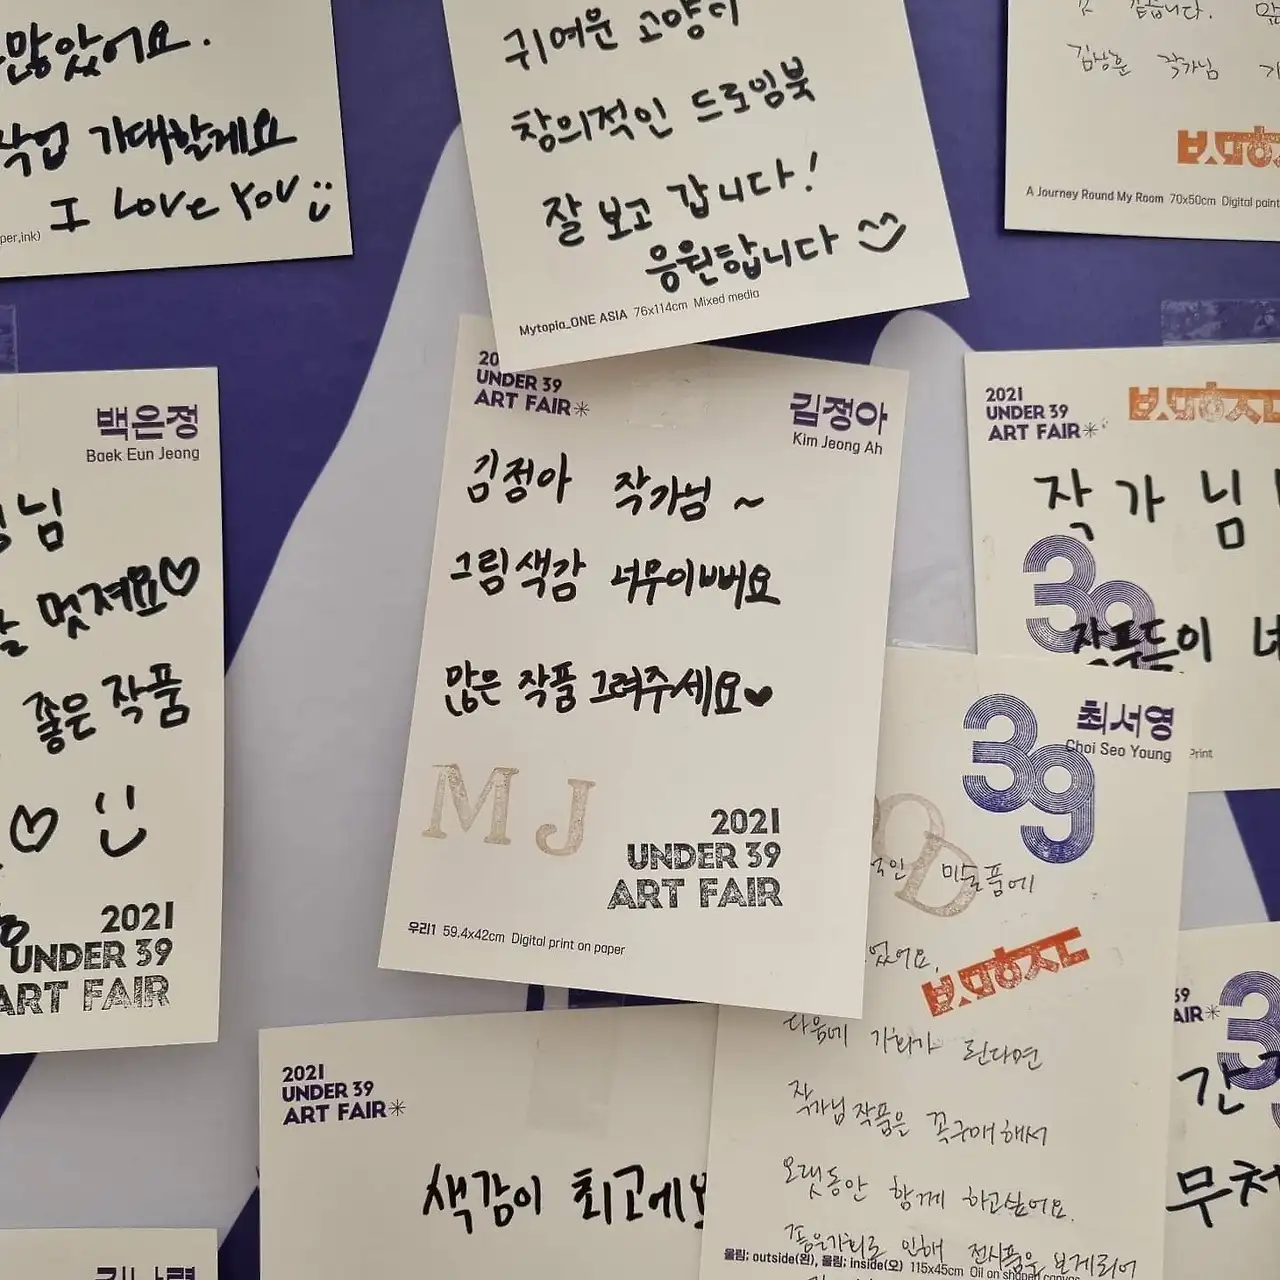 많았어요.
작업 기대할게요
I Love You
per,ink)
귀여운 고양이
창의적인 드로잉북
잘 보고 갑니다!
응원합니다
Mytopia_ONE ASIA 76x114cm Mixed media
김상훈 작가님
A Journey Round My Room 70x50cm Digital paint
백은정
Baek Eun Jeong
님
멋져요♡
좋은 작품
♡
2021
UNDER 39
ART FAIR
20
UNDER 39
ART FAIR✳
김정아
Kim Jeong Ah
김정아 작가님 ~
그림 색감 너무이뻐요
많은 작품 그려주세요♥
M J
2021
UNDER 39
ART FAIR
우리1 59.4x42cm Digital print on paper
2021
UNDER 39
ART FAIR✳
작가님
39
작품들이 너
Print
39
최서영
Choi Seo Young
O D
적인 미술품에
었어요.
다음에 기회가 된다면
작가님 작품은 꼭구매해서
오랫동안 함께 하고싶어요.
좋은기회로 인해 전시품을 보게되어
울림; outside(왼), 울림; inside(오) 115x45cm Oil on shaped canvas
2021
UNDER 39
ART FAIR✳
색감이 최고에
39
AIR✳
3
간
무